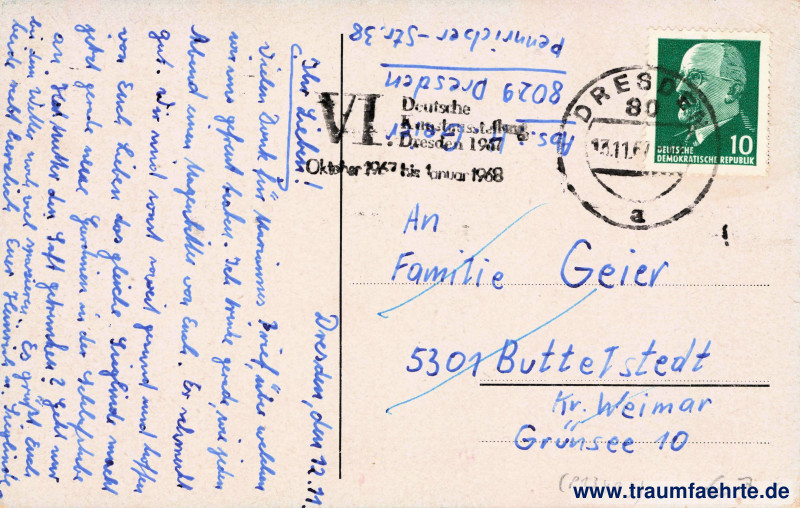 Dresden, den 12.11.
Ihr Lieben!
Vielen Dank für Brief, über welchen
wir uns gefreut haben. Ich trinke gerade, wie jeden
Abend einen von Euch. Er schmeckt
gut. Wir sind sonst soweit gesund und hoffen
von Euch Lieben das gleiche. Sieglinde macht
jetzt gerade neue Gardinen in der Schlafstube
an. Hat den Saft getrunken? Geht nur
bei dem Wetter nicht viel spazieren. Es grüßt Euch
beide recht herzlich Euer Heinrich u. Sieglinde
Abs.:
8029 Dresden
Pennricher-Str. 38
VI.
Deutsche
Kunstausstellung
Dresden 1967
Oktober 1967 bis Januar 1968
DRESDEN
80
13.11.67
a
10
DEUTSCHE
DEMOKRATISCHE REPUBLIK
An
Familie Geier
5301 Buttelstedt
Kr. Weimar
Grünsee 10
www.traumfaehrte.de